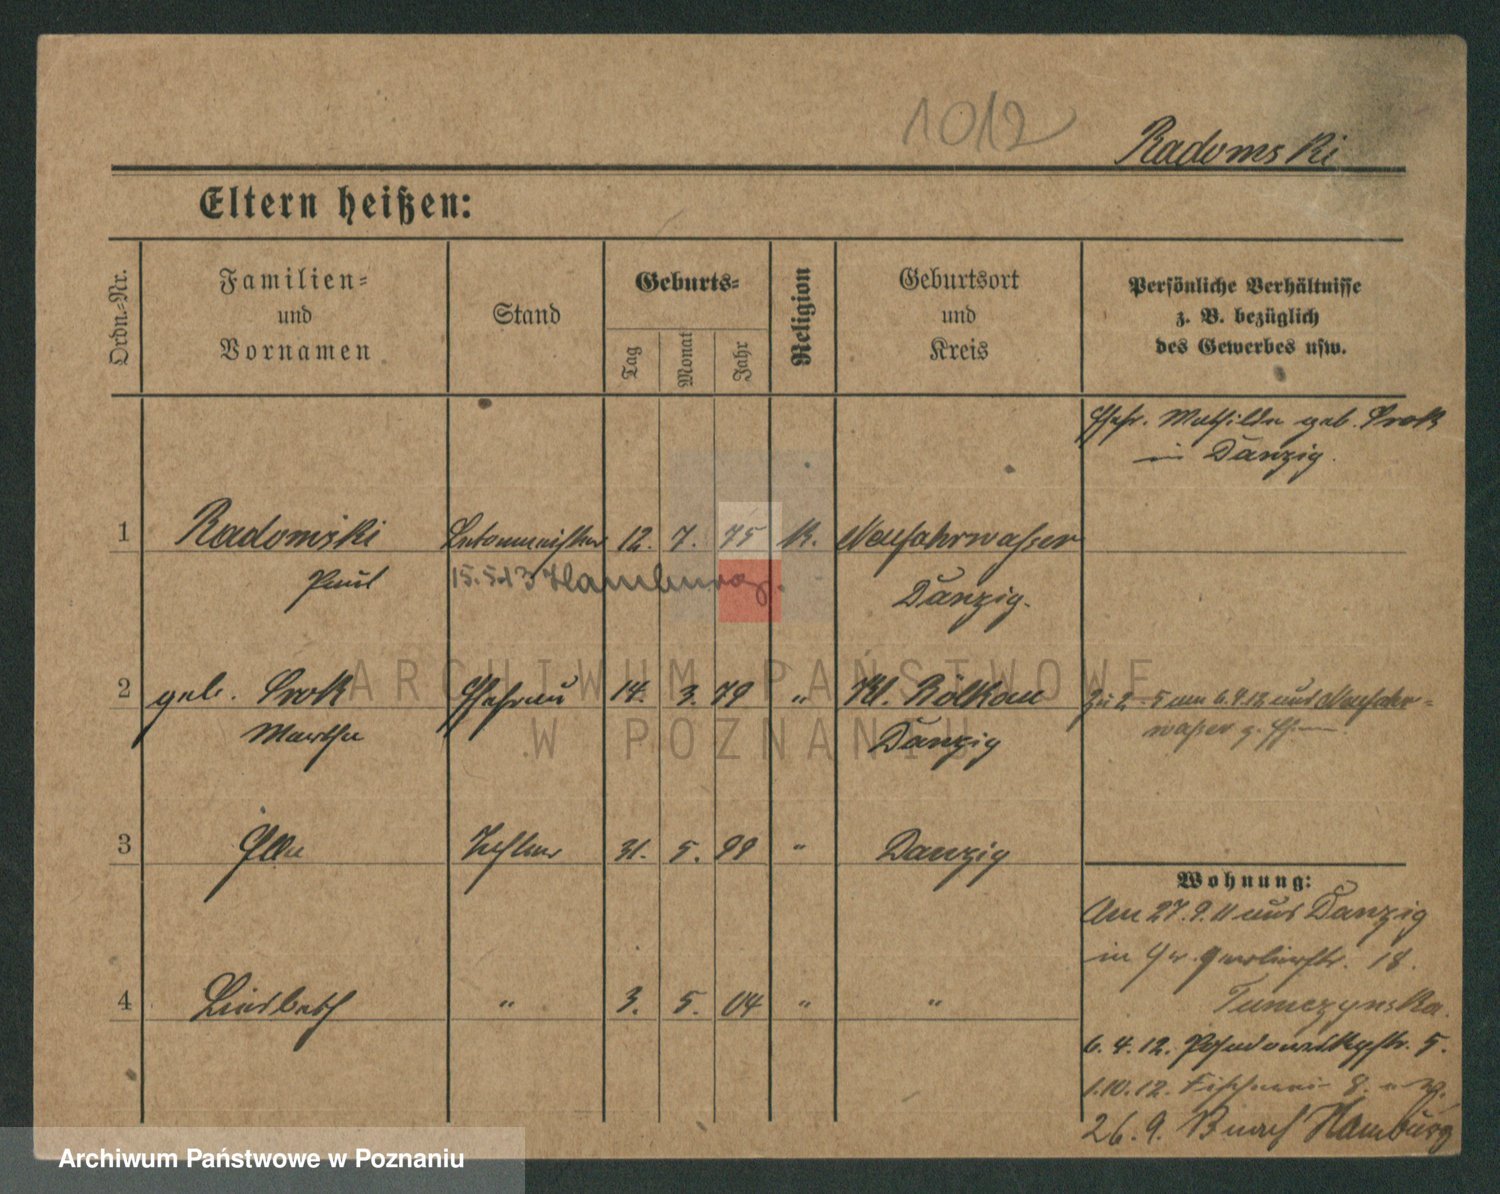 1012
Radomski
Eltern heißen:
Ordn.-Nr.
Familien-
und
Vornamen
Stand
Geburts-
Tag
Monat
Jahr
Religion
Geburtsort
und
Kreis
Persönliche Verhältnisse
z. B. bezüglich
des Gewerbes usw.
Ehefr. Mathilde geb. Krok
in Danzig.
1 Radomski 12. 7. 75 K. Neufahrwasser
Paul 15.5.13 Hamburg. Danzig.
ARCHIWUM PAŃSTWOWE
W POZNANIU
2 geb. Krok Ehefrau 14. 3. 79 " Kl. Bölkau
Martha Danzig
zu 2-5 am 6.4.12 aus Neufahr-
wasser z. Ehem.
3 Ella Tochter 31. 5. 99 " Danzig
4 Liesbeth " 3. 5. 04 " "
Wohnung:
Am 27.9.11 aus Danzig
in Gr. Gerberstr. 18.
Tumczynska.
6.4.12. Posadowskystr. 5.
1.10.12. Fischerei 8.
26.9. 13 nach Hamburg
Archiwum Państwowe w Poznaniu